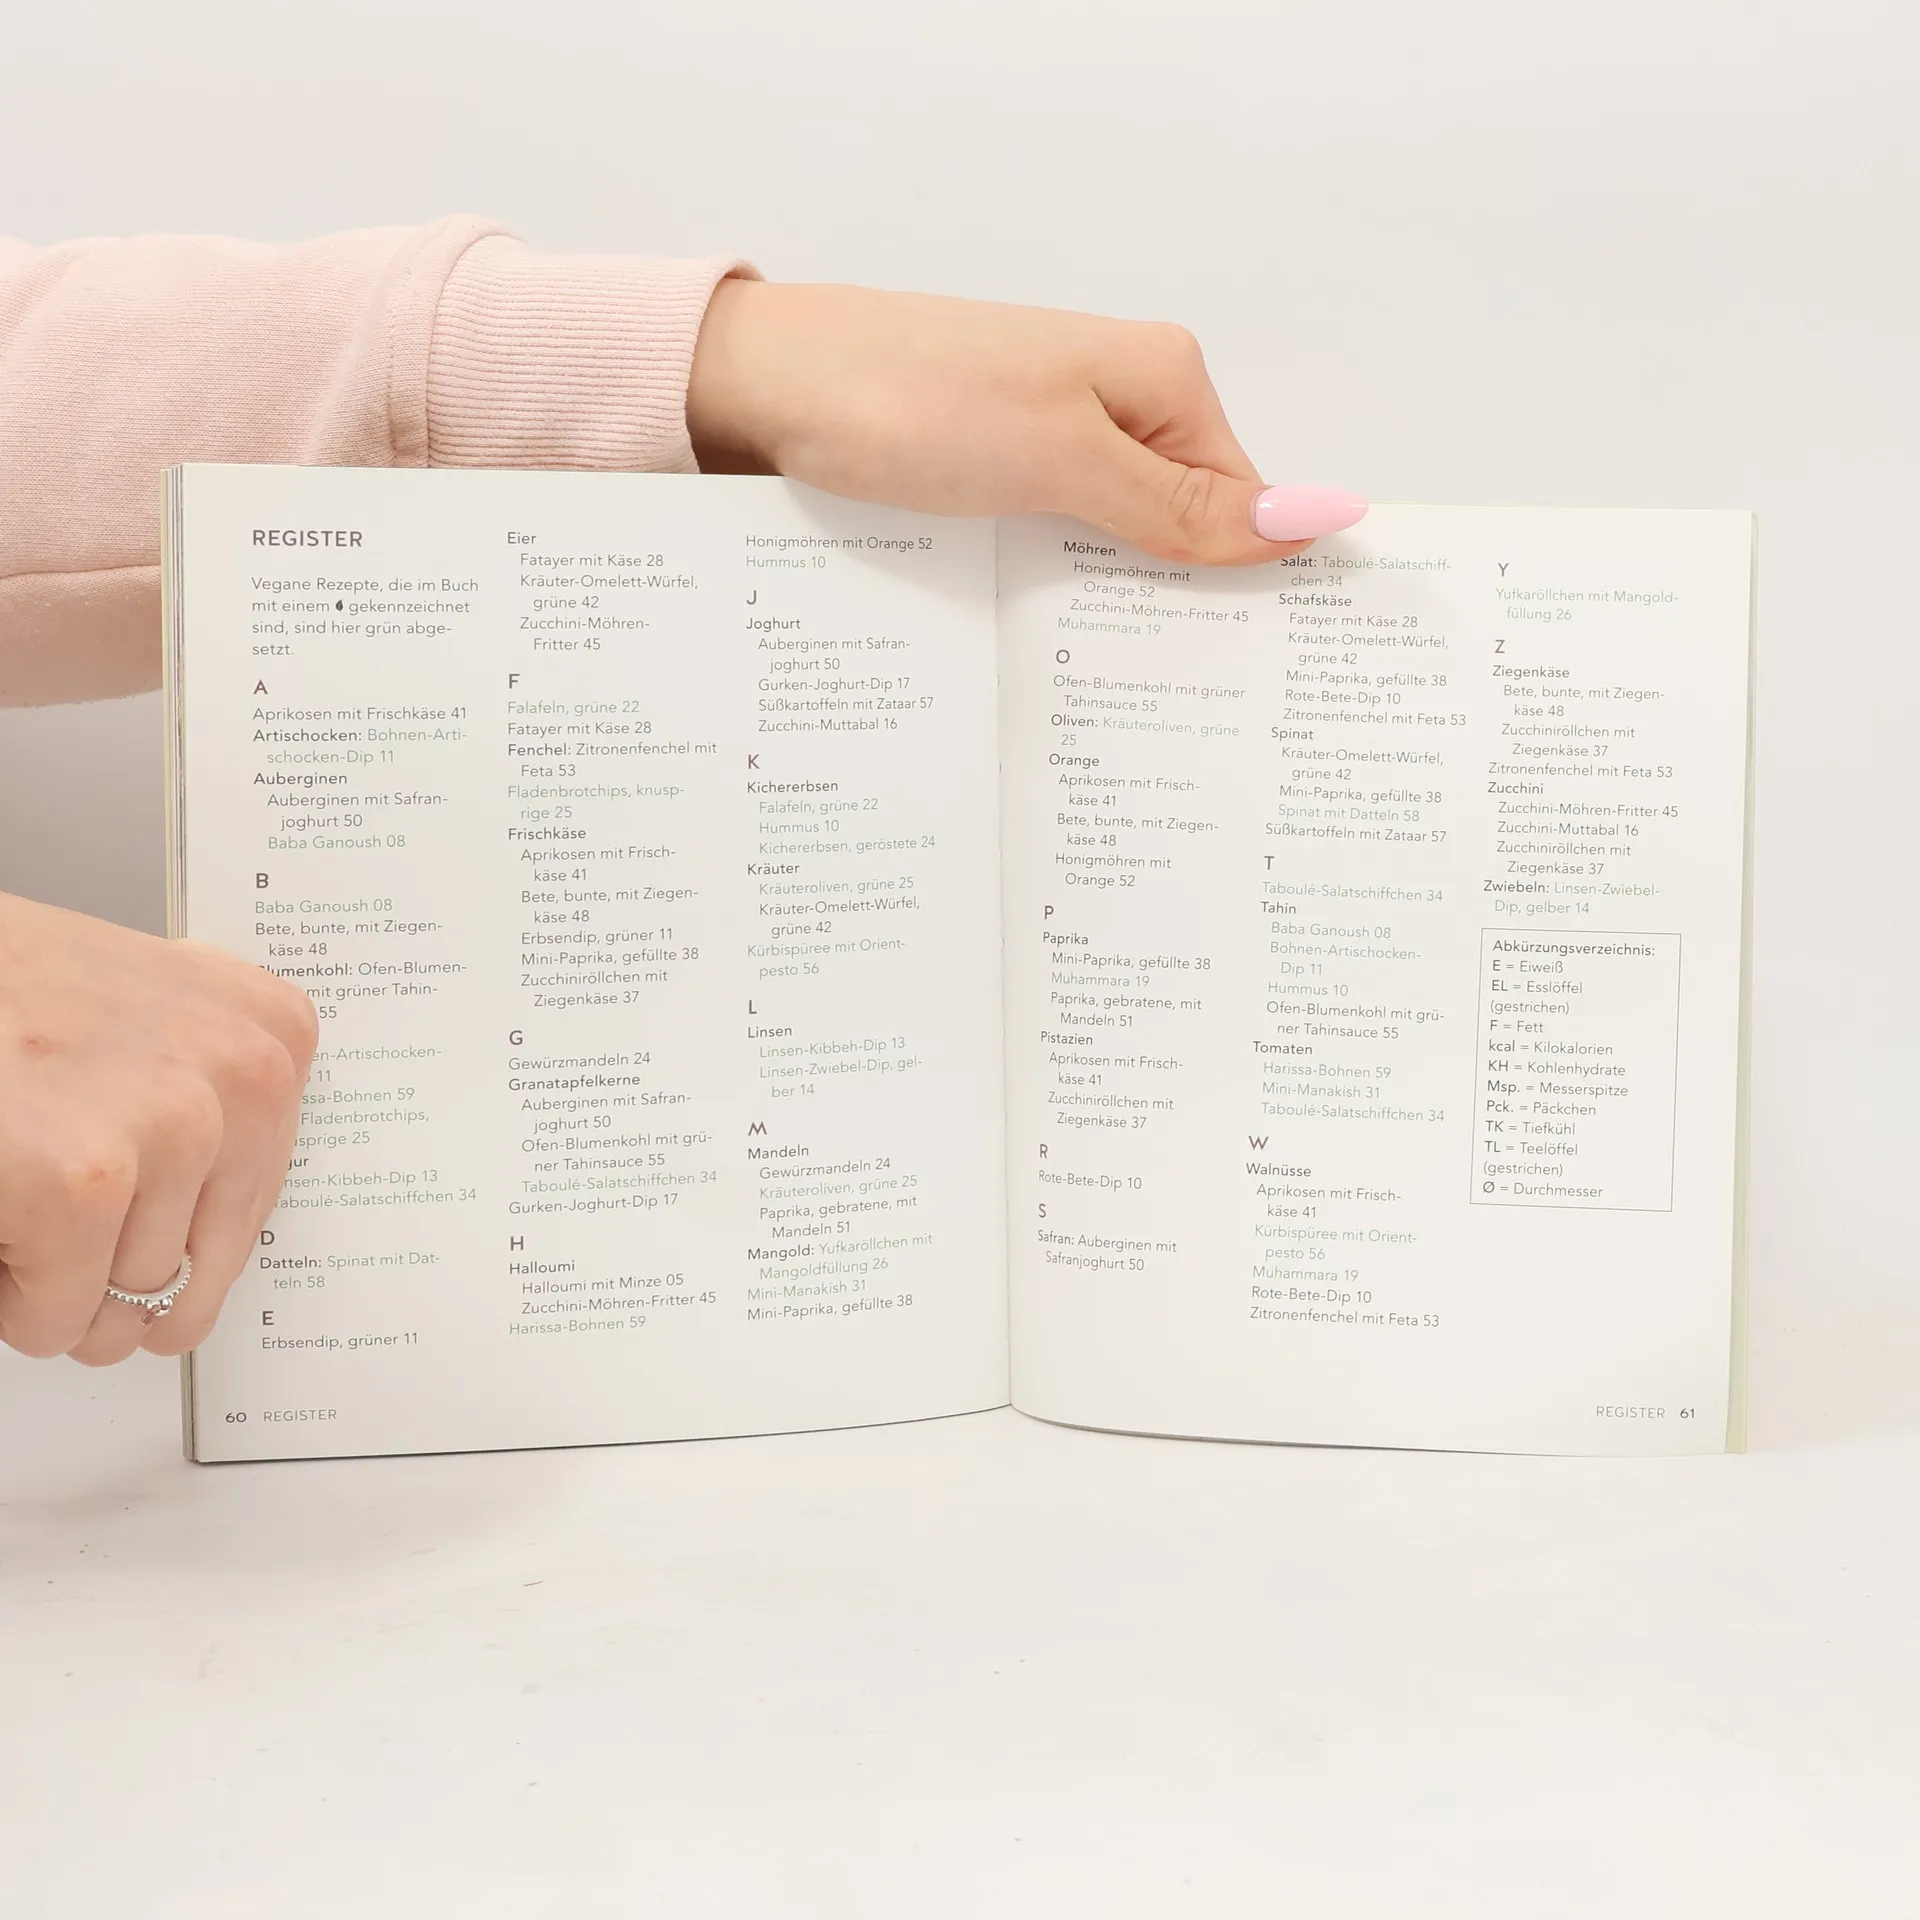 REGISTER
Vegane Rezepte, die im Buch
mit einem gekennzeichnet
sind, sind hier grün abge-
setzt.
A
Aprikosen mit Frischkäse 41
Artischocken: Bohnen-Arti-
schocken-Dip 11
Auberginen
Auberginen mit Safran-
joghurt 50
Baba Ganoush 08
B
Baba Ganoush 08
Bete, bunte, mit Ziegen-
käse 48
Blumenkohl: Ofen-Blumen-
mit grüner Tahin-
55
en-Artischocken-
11
ssa-Bohnen 59
Fladenbrotchips,
sprige 25
gur
nsen-Kibbeh-Dip 13
Taboulé-Salatschiffchen 34
D
Datteln: Spinat mit Dat-
teln 58
E
Erbsendip, grüner 11
Eier
Fatayer mit Käse 28
Kräuter-Omelett-Würfel,
grüne 42
Zucchini-Möhren-
Fritter 45
F
Falafeln, grüne 22
Fatayer mit Käse 28
Fenchel: Zitronenfenchel mit
Feta 53
Fladenbrotchips, knusp-
rige 25
Frischkäse
Aprikosen mit Frisch-
käse 41
Bete, bunte, mit Ziegen-
käse 48
Erbsendip, grüner 11
Mini-Paprika, gefüllte 38
Zucchiniröllchen mit
Ziegenkäse 37
G
Gewürzmandeln 24
Granatapfelkerne
Auberginen mit Safran-
joghurt 50
Ofen-Blumenkohl mit grü-
ner Tahinsauce 55
Taboulé-Salatschiffchen 34
Gurken-Joghurt-Dip 17
H
Halloumi
Halloumi mit Minze 05
Zucchini-Möhren-Fritter 45
Harissa-Bohnen 59
Honigmöhren mit Orange 52
Hummus 10
J
Joghurt
Auberginen mit Safran-
joghurt 50
Gurken-Joghurt-Dip 17
Süßkartoffeln mit Zataar 57
Zucchini-Muttabal 16
K
Kichererbsen
Falafeln, grüne 22
Hummus 10
Kichererbsen, geröstete 24
Kräuter
Kräuteroliven, grüne 25
Kräuter-Omelett-Würfel,
grüne 42
Kürbispüree mit Orient-
pesto 56
L
Linsen
Linsen-Kibbeh-Dip 13
Linsen-Zwiebel-Dip, gel-
ber 14
M
Mandeln
Gewürzmandeln 24
Kräuteroliven, grüne 25
Paprika, gebratene, mit
Mandeln 51
Mangold: Yufkaröllchen mit
Mangoldfüllung 26
Mini-Manakish 31
Mini-Paprika, gefüllte 38
60 REGISTER
Möhren
Honigmöhren mit
Orange 52
Zucchini-Möhren-Fritter 45
Muhammara 19
O
Ofen-Blumenkohl mit grüner
Tahinsauce 55
Oliven: Kräuteroliven, grüne
25
Orange
Aprikosen mit Frisch-
käse 41
Bete, bunte, mit Ziegen-
käse 48
Honigmöhren mit
Orange 52
P
Paprika
Mini-Paprika, gefüllte 38
Muhammara 19
Paprika, gebratene, mit
Mandeln 51
Pistazien
Aprikosen mit Frisch-
käse 41
Zucchiniröllchen mit
Ziegenkäse 37
R
Rote-Bete-Dip 10
S
Safran: Auberginen mit
Safranjoghurt 50
Salat: Taboulé-Salatschiff-
chen 34
Schafskäse
Fatayer mit Käse 28
Kräuter-Omelett-Würfel,
grüne 42
Mini-Paprika, gefüllte 38
Rote-Bete-Dip 10
Zitronenfenchel mit Feta 53
Spinat
Kräuter-Omelett-Würfel,
grüne 42
Mini-Paprika, gefüllte 38
Spinat mit Datteln 58
Süßkartoffeln mit Zataar 57
T
Taboulé-Salatschiffchen 34
Tahin
Baba Ganoush 08
Bohnen-Artischocken-
Dip 11
Hummus 10
Ofen-Blumenkohl mit grü-
ner Tahinsauce 55
Tomaten
Harissa-Bohnen 59
Mini-Manakish 31
Taboulé-Salatschiffchen 34
W
Walnüsse
Aprikosen mit Frisch-
käse 41
Kürbispüree mit Orient-
pesto 56
Muhammara 19
Rote-Bete-Dip 10
Zitronenfenchel mit Feta 53
Y
Yufkaröllchen mit Mangold-
füllung 26
Z
Ziegenkäse
Bete, bunte, mit Ziegen-
käse 48
Zucchiniröllchen mit
Ziegenkäse 37
Zitronenfenchel mit Feta 53
Zucchini
Zucchini-Möhren-Fritter 45
Zucchini-Muttabal 16
Zucchiniröllchen mit
Ziegenkäse 37
Zwiebeln: Linsen-Zwiebel-
Dip, gelber 14
Abkürzungsverzeichnis:
E = Eiweiß
EL = Esslöffel
(gestrichen)
F = Fett
kcal = Kilokalorien
KH = Kohlenhydrate
Msp. = Messerspitze
Pck. = Päckchen
TK = Tiefkühl
TL = Teelöffel
(gestrichen)
Ø = Durchmesser
REGISTER 61